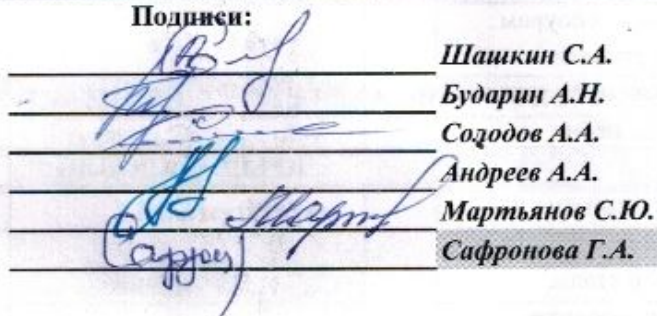 Подписи:
Шашкин С.А.
Бударин А.Н.
Солодов А.А.
Андреев А.А.
Мартьянов С.Ю.
Сафронова Г.А.